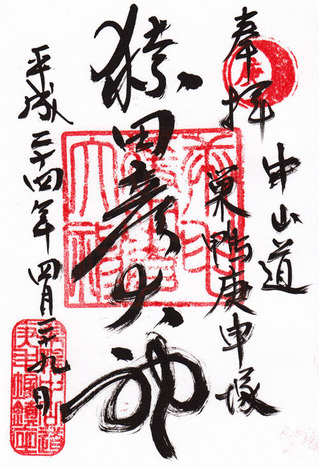 奉拝
中山道
巣鴨庚申塚
猿田彦大神
平成二十四年四月二十九日